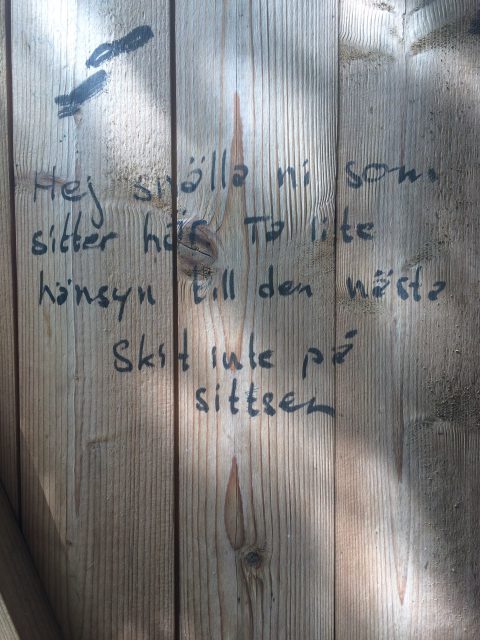 Hej snälla ni som
sitter här. Ta lite
hänsyn till den nästa
Skit inte på
sittsen